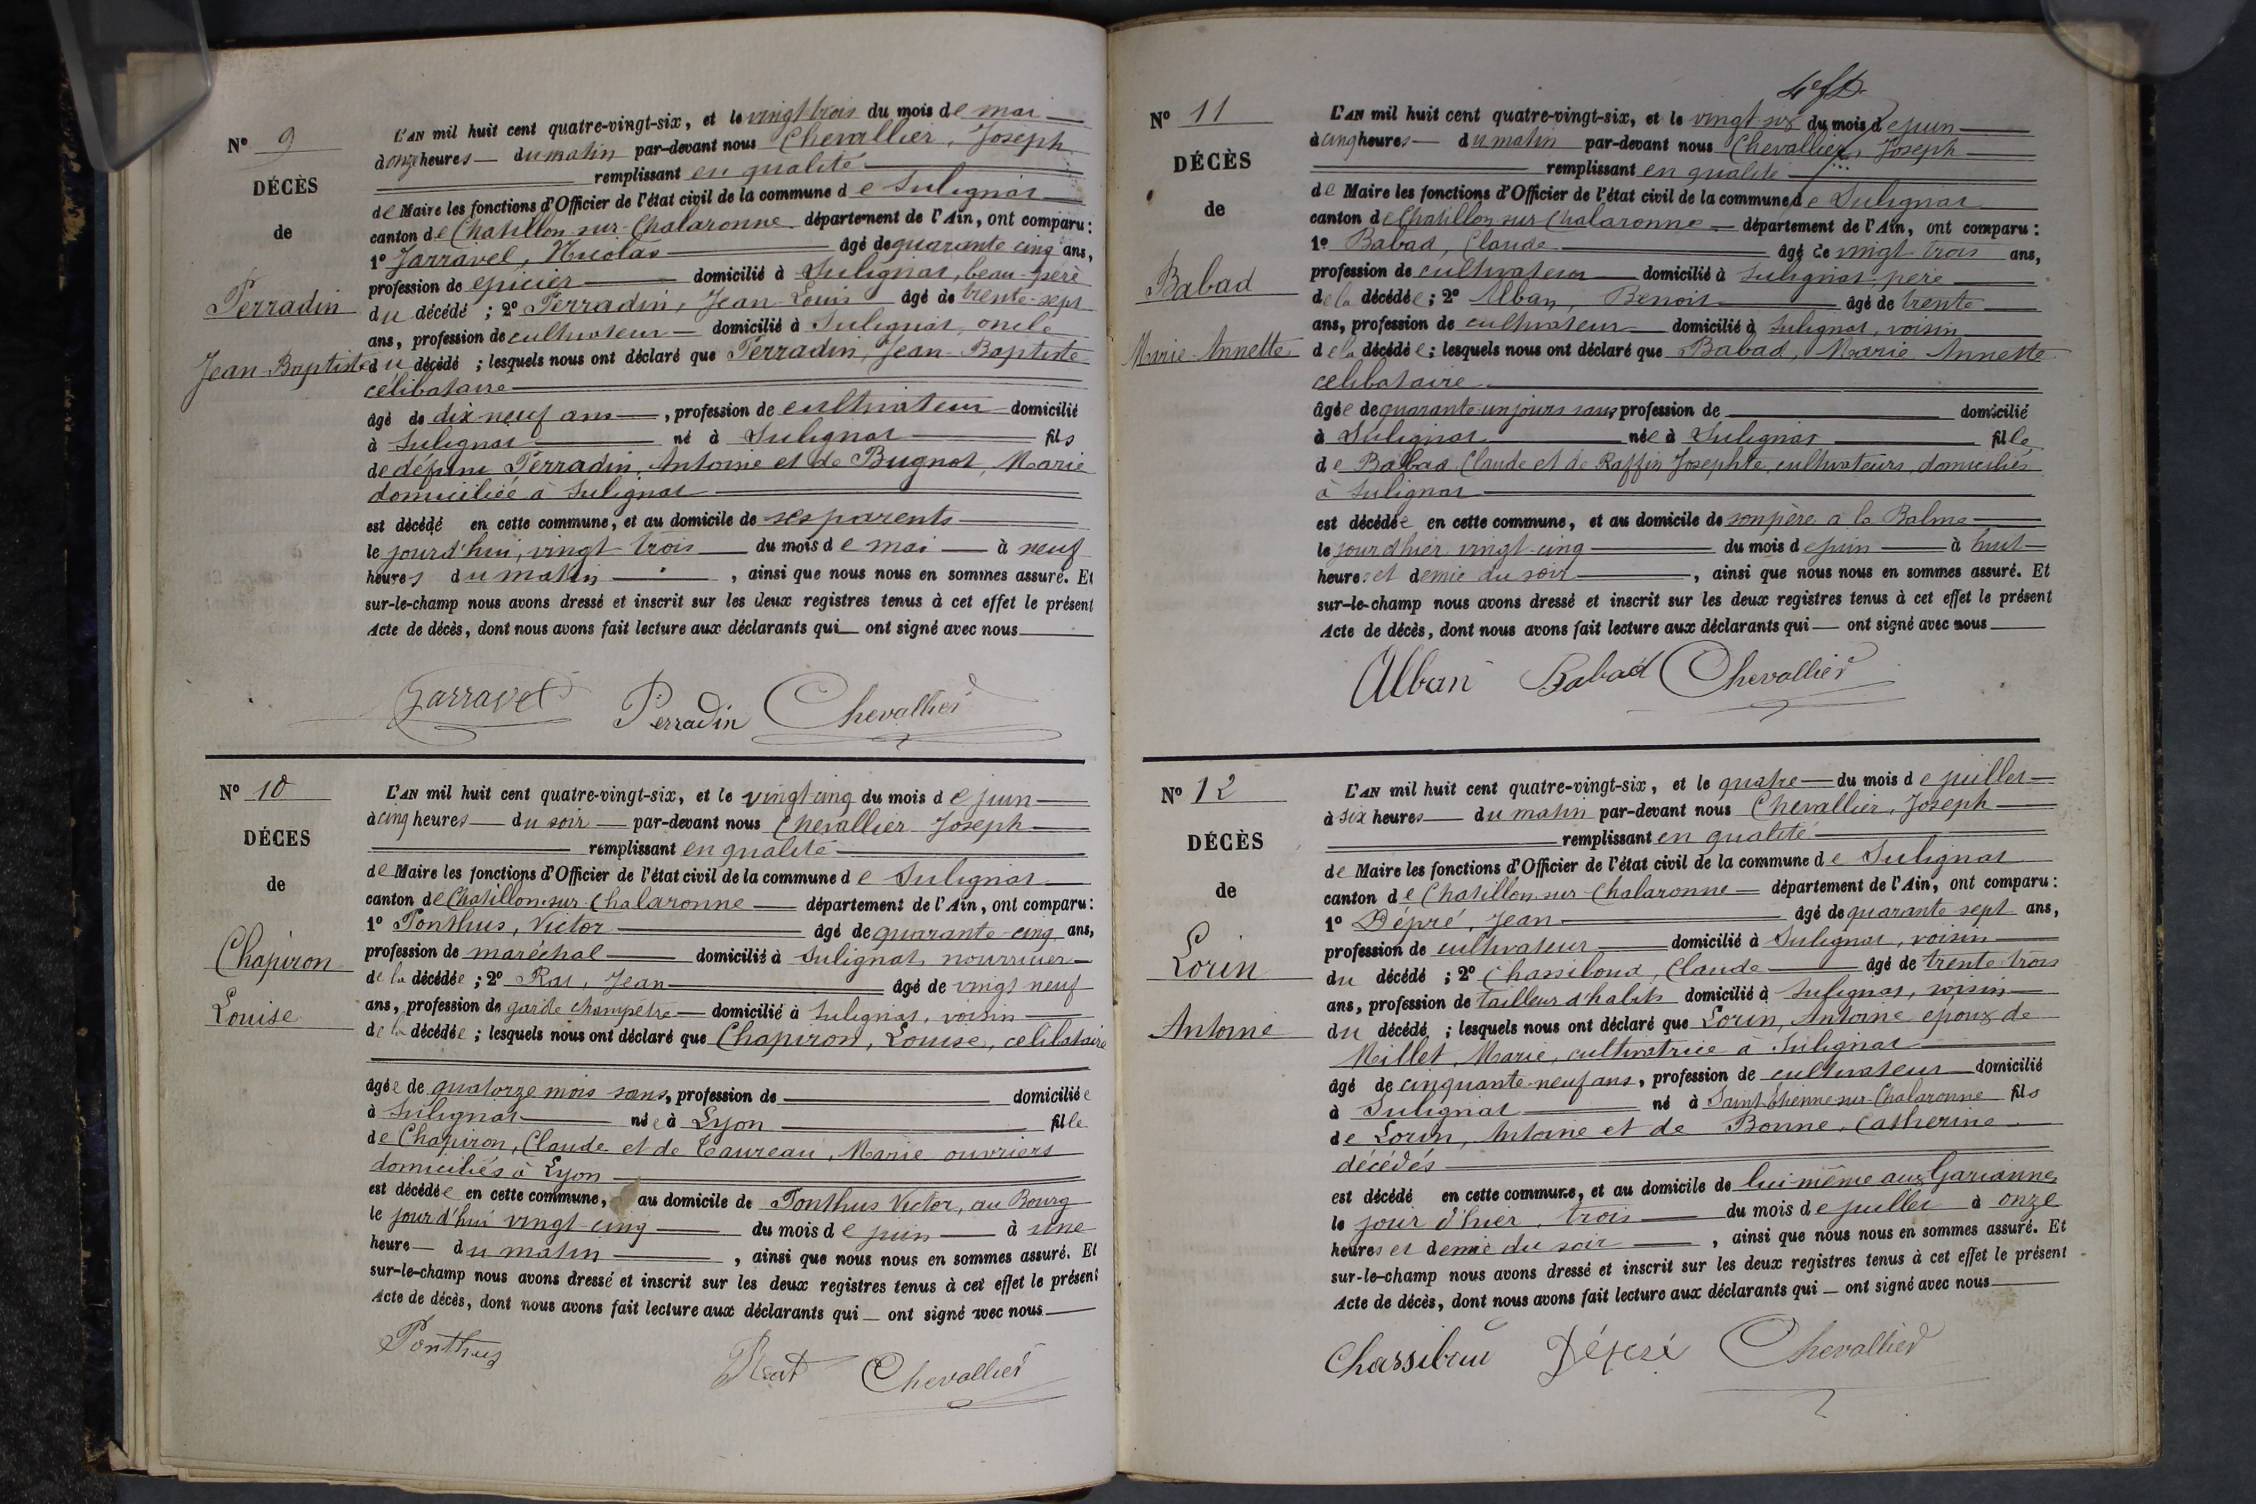 N° 9
DÉCÈS
de
Perradin
Jean-Baptiste
L'AN mil huit cent quatre-vingt-six, et le vingt trois du mois de mai
à onze heures du matin par-devant nous Chevallier, Joseph
remplissant en qualité
de Maire les fonctions d'Officier de l'état civil de la commune de Sulignat
canton de Chatillon-sur-Chalaronne département de l'Ain, ont comparu:
1° Jarravel, Nicolas âgé de quarante cinq ans,
profession de epicier domicilié à Sulignat, beau-père
du décédé ; 2° Perradin, Jean-Louis âgé de trente-sept
ans, profession de cultivateur domicilié à Sulignat, oncle
du décédé ; lesquels nous ont déclaré que Perradin, Jean-Baptiste
célibataire
âgé de dix neuf ans, profession de cultivateur domicilié
à Sulignat né à Sulignat fils
de défunt Perradin, Antoine et de Bugnot, Marie
domiciliée à Sulignat
est décédé en cette commune, et au domicile de ses parents
le jourd'hui, vingt-trois du mois de mai à neuf
heures du matin, ainsi que nous nous en sommes assuré. Et
sur-le-champ nous avons dressé et inscrit sur les deux registres tenus à cet effet le présent
Acte de décès, dont nous avons fait lecture aux déclarants qui ont signé avec nous
Jarravel Perradin Chevallier
N° 10
DÉCÈS
de
Chapiron
Louise
L'AN mil huit cent quatre-vingt-six, et le vingt cinq du mois de juin
à cinq heures du soir par-devant nous Chevallier Joseph
remplissant en qualité
de Maire les fonctions d'Officier de l'état civil de la commune de Sulignat
canton de Chatillon-sur-Chalaronne département de l'Ain, ont comparu:
1° Ponthus, Victor âgé de quarante-cinq ans,
profession de maréchal domicilié à Sulignat, nourricier
de la décédée ; 2° Rat, Jean âgé de vingt neuf
ans, profession de garde champêtre domicilié à Sulignat, voisin
de la décédée ; lesquels nous ont déclaré que Chapiron, Louise, célibataire
âgée de quatorze mois sans, profession de domiciliée
à Sulignat née à Lyon fille
de Chapiron, Claude et de Taureau, Marie ouvriers
domiciliés à Lyon
est décédée en cette commune, au domicile de Ponthus Victor, au Bourg
le jourd'hui vingt-cinq du mois de juin à une
heure du matin, ainsi que nous nous en sommes assuré. Et
sur-le-champ nous avons dressé et inscrit sur les deux registres tenus à cet effet le présent
Acte de décès, dont nous avons fait lecture aux déclarants qui ont signé avec nous
Ponthus Rat Chevallier
N° 11
DÉCÈS
de
Babad
Marie-Annette
L'AN mil huit cent quatre-vingt-six, et le vingt-six du mois de juin
à cinq heures du matin par-devant nous Chevallier, Joseph
remplissant en qualité
de Maire les fonctions d'Officier de l'état civil de la commune de Sulignat
canton de Chatillon sur Chalaronne département de l'Ain, ont comparu:
1° Babad, Claude âgé de vingt trois ans,
profession de cultivateur domicilié à Sulignat, père
de la décédée ; 2° Alban, Benoit âgé de trente
ans, profession de cultivateur domicilié à Sulignat, voisin
de la décédée ; lesquels nous ont déclaré que Babad, Marie Annette
celibataire
âgée de quarante-un jours sans, profession de domicilié
à Sulignat née à Sulignat fille
de Babad Claude et de Raffin Josephte, cultivateurs, domiciliés
à Sulignat
est décédée en cette commune, et au domicile de son père a la Balme
le jour d'hier vingt-cinq du mois de juin à huit
heures et demie du soir, ainsi que nous nous en sommes assuré. Et
sur-le-champ nous avons dressé et inscrit sur les deux registres tenus à cet effet le présent
Acte de décès, dont nous avons fait lecture aux déclarants qui ont signé avec nous
Alban Babad Chevallier
N° 12
DÉCÈS
de
Lorin
Antoine
L'AN mil huit cent quatre-vingt-six, et le quatre du mois de juillet
à six heures du matin par-devant nous Chevallier, Joseph
remplissant en qualité
de Maire les fonctions d'Officier de l'état civil de la commune de Sulignat
canton de Chatillon sur Chalaronne département de l'Ain, ont comparu:
1° Dépré, Jean âgé de quarante sept ans,
profession de cultivateur domicilié à Sulignat, voisin
du décédé ; 2° Chassiboud, Claude âgé de trente-trois
ans, profession de tailleur d'habits domicilié à Sulignat, voisin
du décédé ; lesquels nous ont déclaré que Lorin, Antoine epoux de
Millet, Marie, cultivatrice à Sulignat
âgé de cinquante-neuf ans, profession de cultivateur domicilié
à Sulignat né à Saint Etienne sur Chalaronne fils
de Lorin, Antoine et de Bonne, Catherine
décédés
est décédé en cette commune, et au domicile de lui-même aux Gariannes
le jour d'hier, trois du mois de juillet à onze
heures et demie du soir, ainsi que nous nous en sommes assuré. Et
sur-le-champ nous avons dressé et inscrit sur les deux registres tenus à cet effet le présent
Acte de décès, dont nous avons fait lecture aux déclarants qui ont signé avec nous
Chassibou Dépré Chevallier